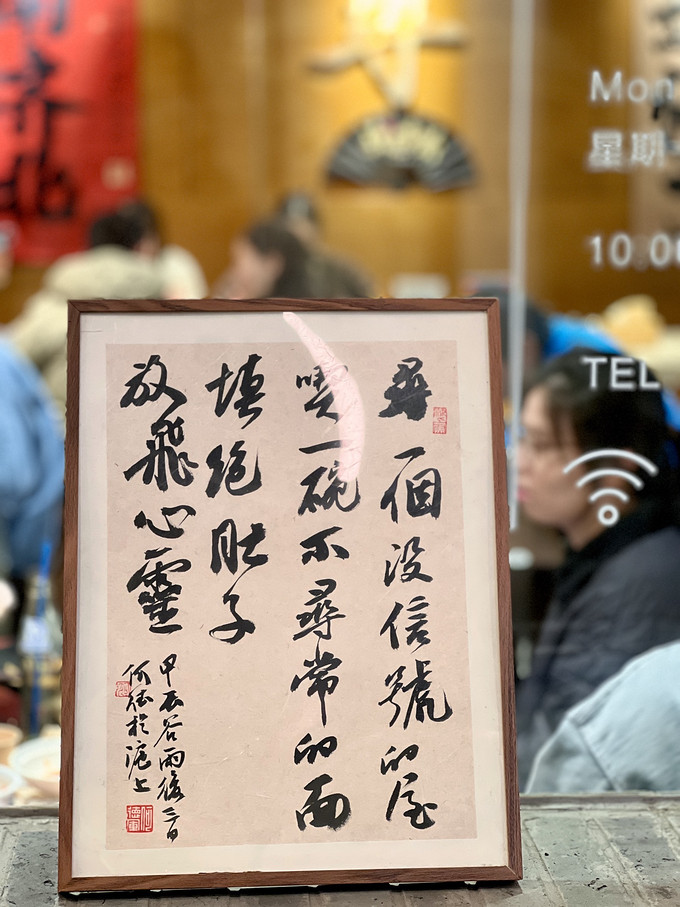 尋一個没信號的屋
喫一碗不尋常的面
填飽肚子
放飛心靈
甲辰谷雨後三日
何德於滬上
Mon
星期
10:00
TEL